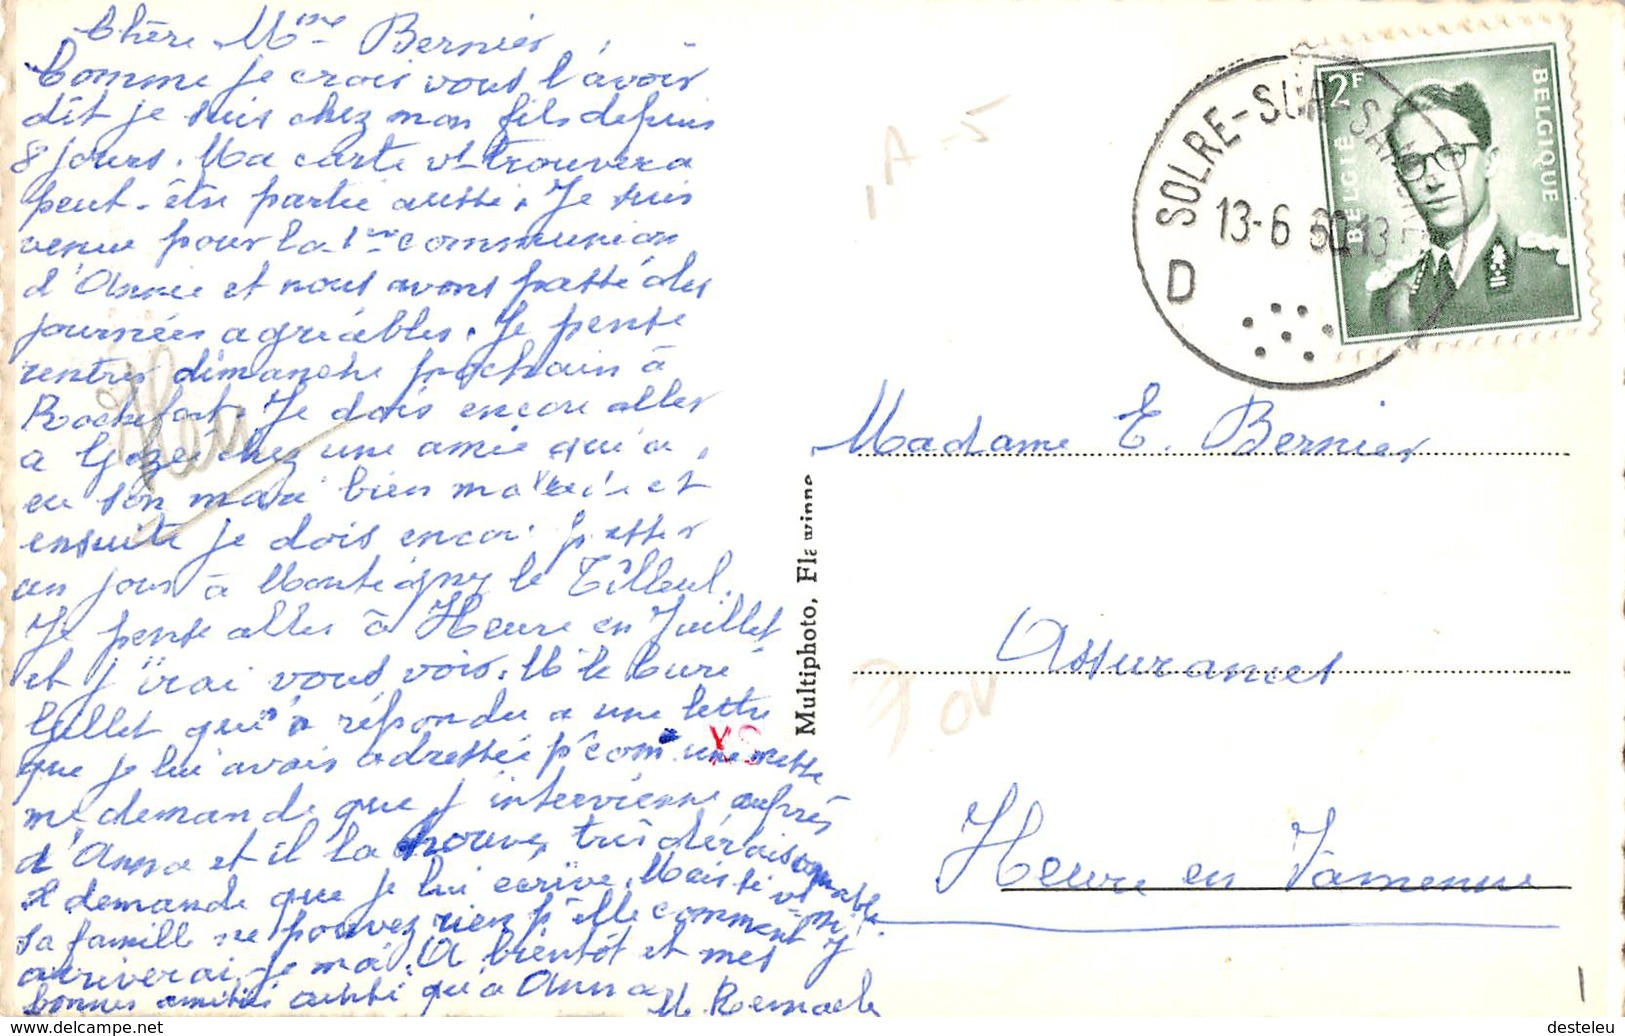 Chère Mme Bernier
Comme je crois vous l'avoir
dit je suis chez mon fils depuis
8 jours. Ma carte vs trouvera
peut-être partie aussi. Je suis
venue pour la 1re communion
d'Annie et nous avons passé des
journées agréables. Je pense
rentrer dimanche prochain à
Rochefort. Je dois encore aller
a Gozée chez une amie qui a
eu son mari bien malade et
ensuite je dois encor passer
un jour à Montigny le Tilleul.
Je pense aller à Heure en Juillet
et j'irai vous voir. Mr le Curé
Gillet qui a répondu a une lettre
que je lui avais adressée pr com une messe
me demande que j'intervienne auprès
d'Anna et il la trouve très déraisonnable
Il demande que je lui écrive. Mais si vs
sa famille ne pouvez rien pr elle comment y
arriverai-je moi. A bientôt et mes
bonnes amitiés aussi qu'à Anna
M. Remacle
Heu
XS
Multiphoto, Flawinne
A-5
SOLRE-SUR-SAMBRE
13-6 60 13
D
2F
BELGIË
BELGIQUE
Madame E. Bernier
Assurances
Heure en Famenne
desteleu